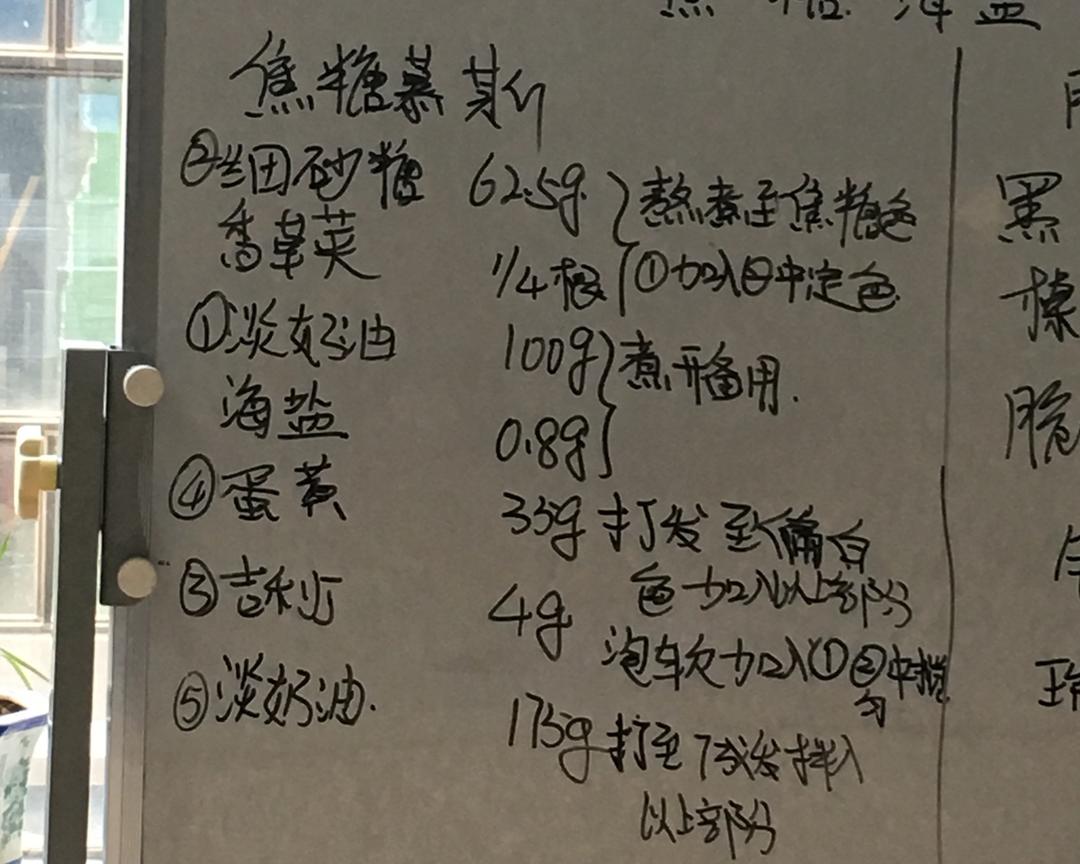 焦糖海盐
焦糖慕斯
②细砂糖 62.5g }熬煮至焦糖色
香草荚 1/4根 ①加入②中定色
①淡奶油 100g }煮开备用.
海盐 0.8g
④蛋黄 35g 打发至偏白
色加入以上部分
③吉利丁 4g 泡软加入①②中搅
匀
⑤淡奶油. 175g 打至7成发拌入
以上部分
黑
脆